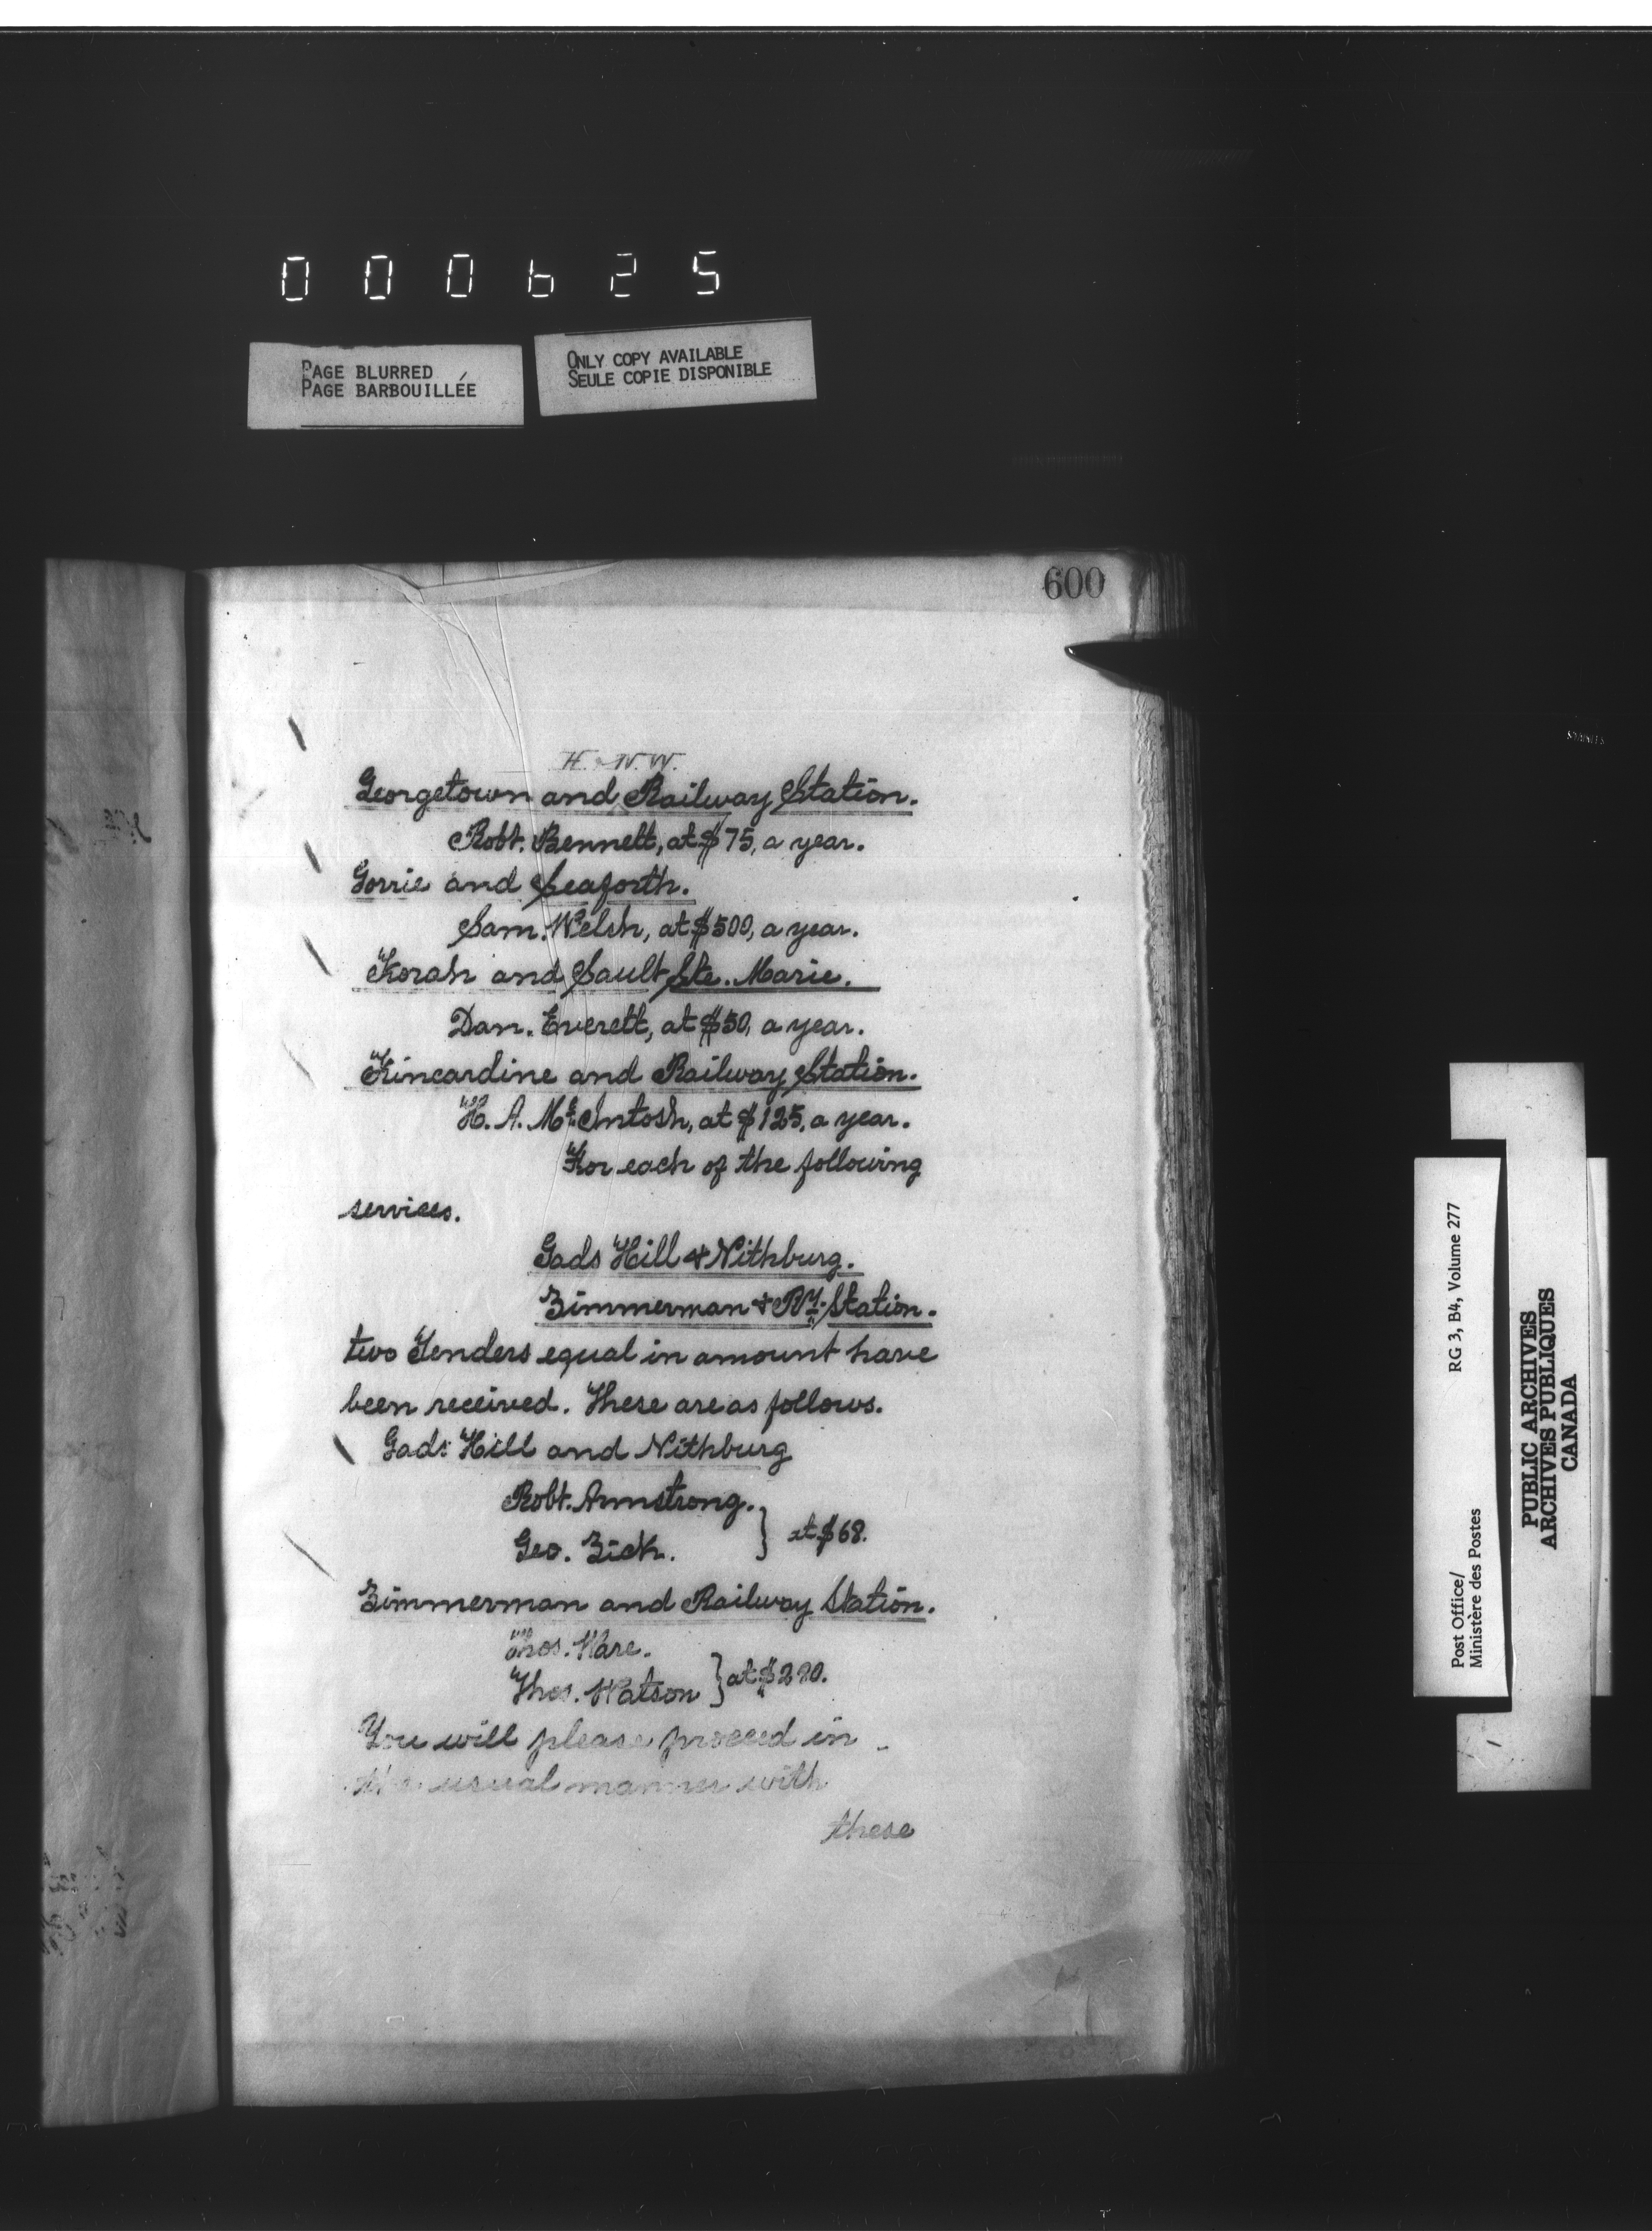 000625
PAGE BLURRED
PAGE BARBOUILLÉE
ONLY COPY AVAILABLE
SEULE COPIE DISPONIBLE
600
H. N. W.
Georgetown and Railway Station.
Robt. Bennett, at $75, a year.
Gorrie and Seaforth.
Sam. Welsh, at $500, a year.
Korah and Sault Ste. Marie.
Dan. Everett, at $50, a year.
Kincardine and Railway Station.
H. A. McIntosh, at $125, a year.
For each of the following
services.
Gads Hill & Nithburg.
Zimmerman & Ry. Station.
two Tenders equal in amount have
been received. These are as follows.
Gads Hill and Nithburg
Robt. Armstrong.
Geo. Zick. } at $68.
Zimmerman and Railway Station.
Thos. Hare.
Thos. Watson } at $220.
You will please proceed in
the usual manner with
these
RG 3, B4, Volume 277
Post Office/
Ministère des Postes
PUBLIC ARCHIVES
ARCHIVES PUBLIQUES
CANADA